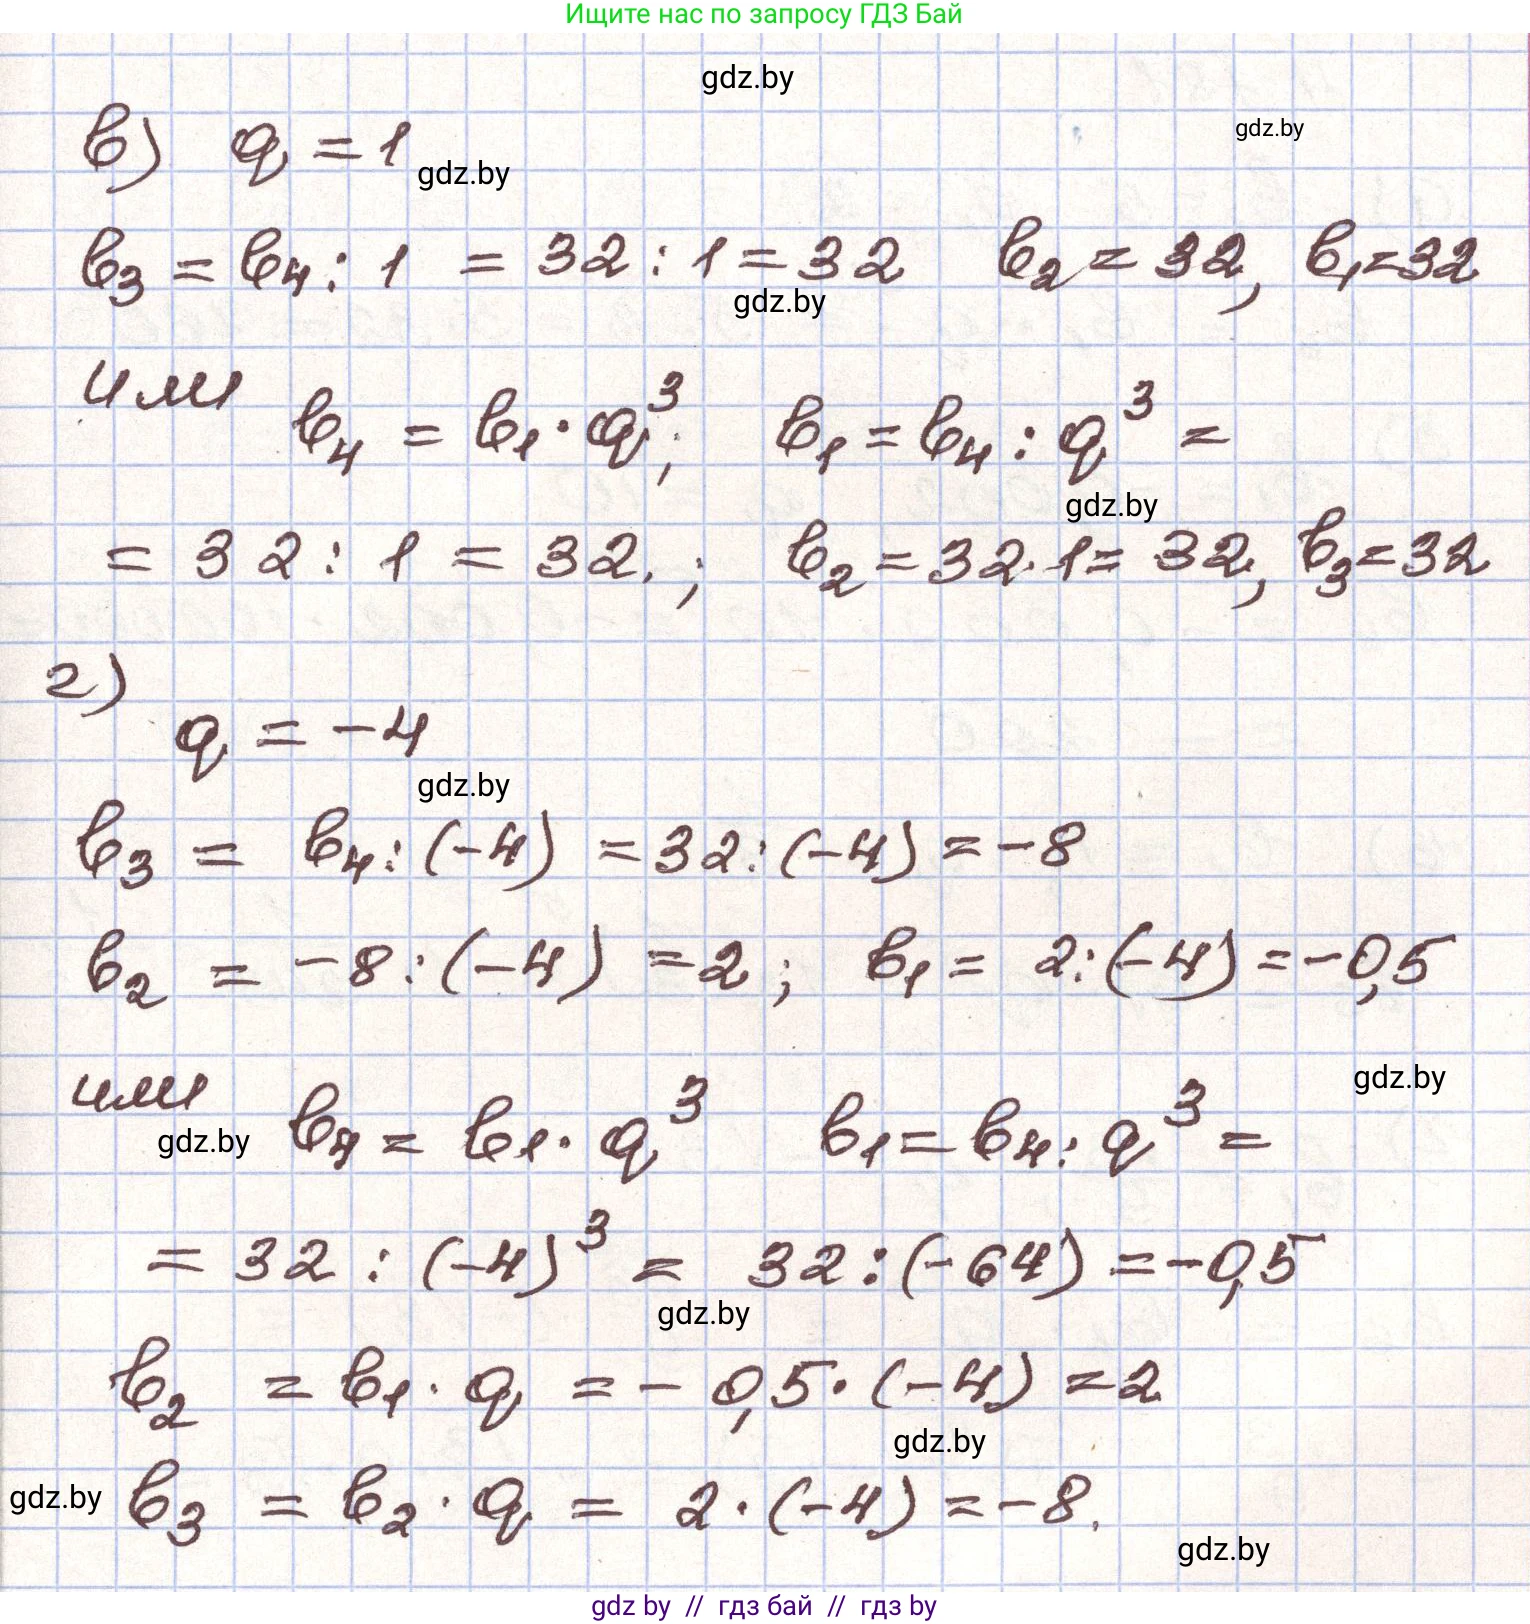 Ищите нас по запросу ГДЗ Бай
gdz.by
gdz.by
в) q = 1
gdz.by
b₃ = b₄ : 1 = 32 : 1 = 32 b₂ = 32, b₁ = 32
gdz.by
или b₄ = b₁ · q³; b₁ = b₄ : q³ =
gdz.by
= 32 : 1 = 32. ; b₂ = 32 · 1 = 32, b₃ = 32
г)
q = -4
gdz.by
b₃ = b₄ : (-4) = 32 : (-4) = -8
b₂ = -8 : (-4) = 2 ; b₁ = 2 : (-4) = -0,5
gdz.by
или b₄ = b₁ · q³ b₁ = b₄ : q³ =
gdz.by
= 32 : (-4)³ = 32 : (-64) = -0,5
gdz.by
b₂ = b₁ · q = -0,5 · (-4) = 2
gdz.by
gdz.by
b₃ = b₂ · q = 2 · (-4) = -8.
gdz.by
gdz by // гдз бай // гдз by